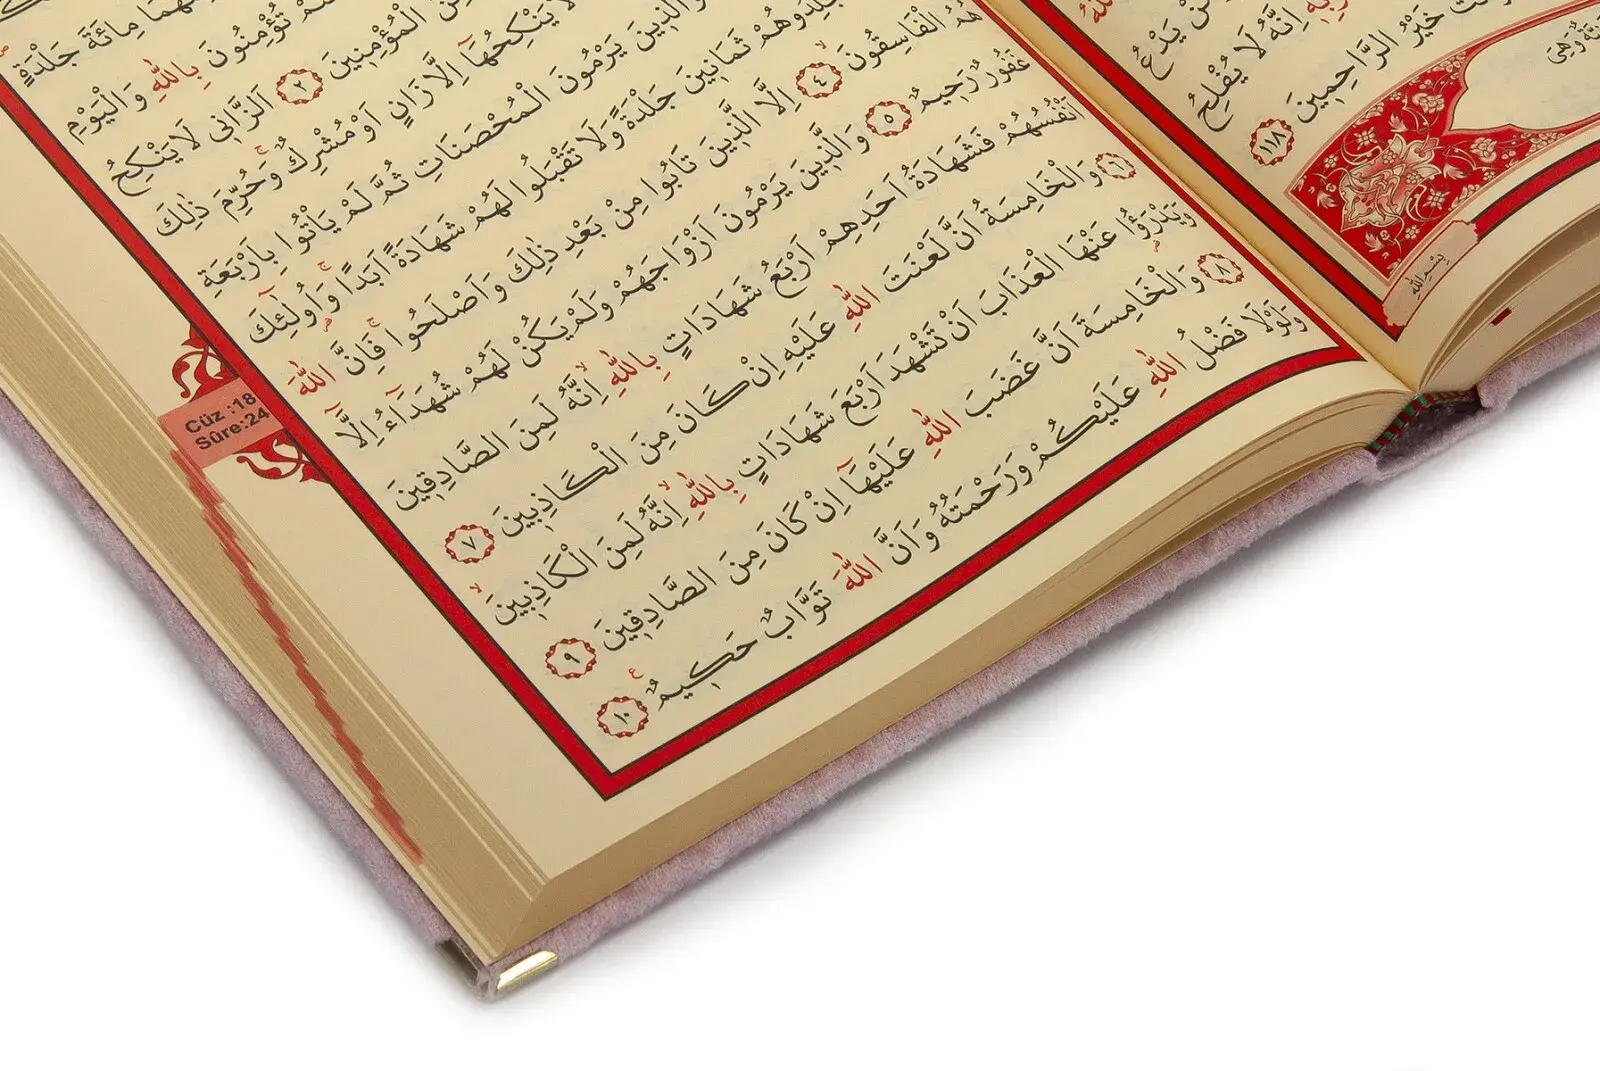 يَدْعُ
اِنَّهُ لَا يُفْلِحُ
خَيْرُ الرَّاحِمِينَ ﴿١١٨﴾
وَهِىَ
بِسْمِ اللّٰهِ
مِائَةَ جَلْدَةٍ
تُؤْمِنُونَ بِاللّٰهِ وَالْيَوْمِ
الْمُؤْمِنِينَ ﴿٢﴾ اَلزَّانِى لَا يَنْكِحُ
لَا يَنْكِحُهَٓا اِلَّا زَانٍ اَوْ مُشْرِكٌ وَحُرِّمَ ذٰلِكَ
وَالَّذِينَ يَرْمُونَ الْمُحْصَنَاتِ ثُمَّ لَمْ يَاْتُوا بِاَرْبَعَةِ
ثَمَانِينَ جَلْدَةً وَلَا تَقْبَلُوا لَهُمْ شَهَادَةً اَبَدًا وَاُولٰٓئِكَ
هُمُ الْفَاسِقُونَ ﴿٤﴾ اِلَّا الَّذِينَ تَابُوا مِنْ بَعْدِ ذٰلِكَ وَاَصْلَحُوا فَاِنَّ اللّٰهَ
غَفُورٌ رَحِيمٌ ﴿٥﴾ وَالَّذِينَ يَرْمُونَ اَزْوَاجَهُمْ وَلَمْ يَكُنْ لَهُمْ شُهَدَٓاءُ اِلَّٓا
اَنْفُسُهُمْ فَشَهَادَةُ اَحَدِهِمْ اَرْبَعُ شَهَادَاتٍ بِاللّٰهِ اِنَّهُ لَمِنَ الصَّادِقِينَ
﴿٦﴾ وَالْخَامِسَةُ اَنَّ لَعْنَتَ اللّٰهِ عَلَيْهِ اِنْ كَانَ مِنَ الْكَاذِبِينَ ﴿٧﴾
وَيَدْرَؤُا عَنْهَا الْعَذَابَ اَنْ تَشْهَدَ اَرْبَعَ شَهَادَاتٍ بِاللّٰهِ اِنَّهُ لَمِنَ الْكَاذِبِينَ
﴿٨﴾ وَالْخَامِسَةَ اَنَّ غَضَبَ اللّٰهِ عَلَيْهَٓا اِنْ كَانَ مِنَ الصَّادِقِينَ ﴿٩﴾
وَلَوْلَا فَضْلُ اللّٰهِ عَلَيْكُمْ وَرَحْمَتُهُ وَاَنَّ اللّٰهَ تَوَّابٌ حَكِيمٌ ﴿١٠﴾
Cüz :18
Sûre:24